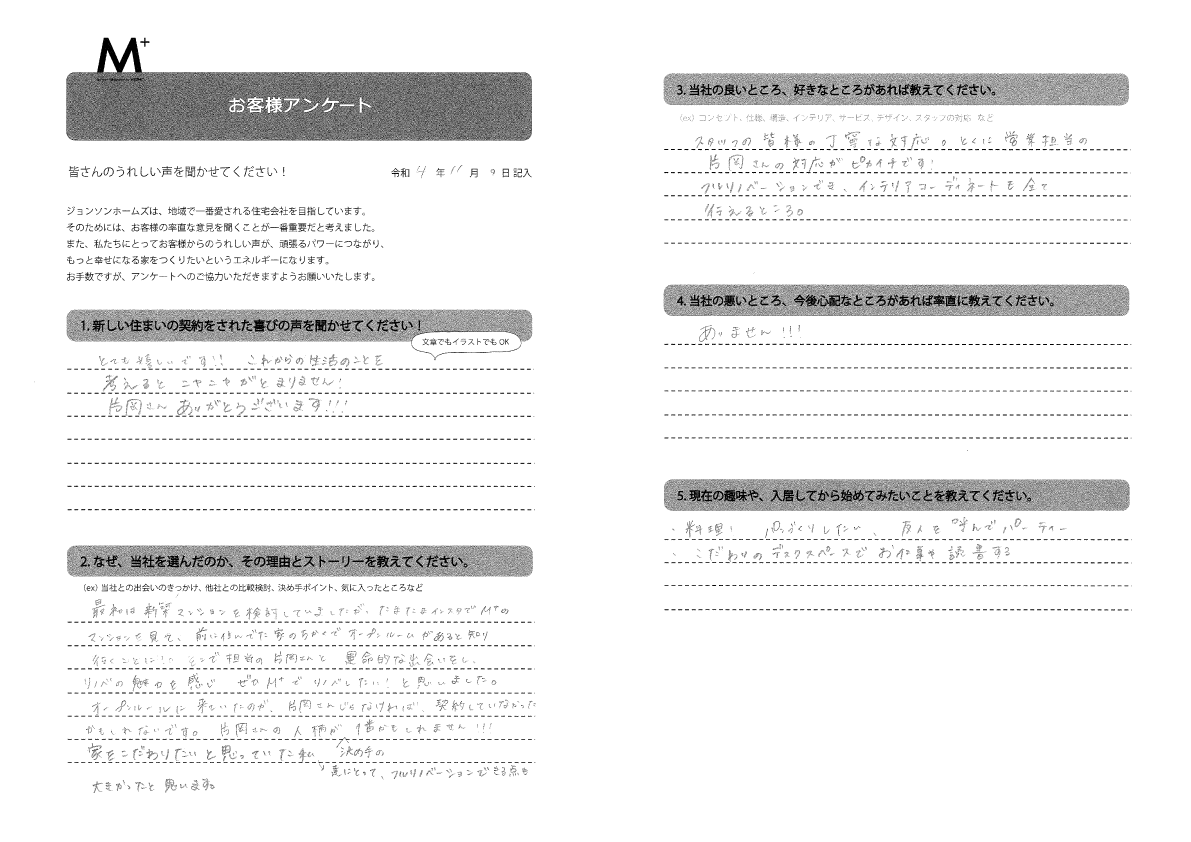 M+
お客様アンケート
皆さんのうれしい声を聞かせてください！
令和 4 年 11 月 9 日 記入
ジョンソンホームズは、地域で一番愛される住宅会社を目指しています。
そのためには、お客様の率直な意見を聞くことが一番重要だと考えました。
また、私たちにとってお客様からのうれしい声が、頑張るパワーにつながり、
もっと幸せになる家をつくりたいというエネルギーになります。
お手数ですが、アンケートへのご協力いただきますようお願いいたします。
1. 新しい住まいの契約をされた喜びの声を聞かせてください！
文章でもイラストでも OK
とても嬉しいです!! これからの生活のことを
考えると ニヤニヤがとまりません!
片岡さん ありがとうございます!!!
2. なぜ、当社を選んだのか、その理由とストーリーを教えてください。
（ex）当社との出会いのきっかけ、他社との比較検討、決め手ポイント、気に入ったところなど
最初は新築マンションを検討していましたが、たまたまインスタで M+の
マンションを見て、前に住んでた家のちかくでオープンルームがあると知り
行くことに!! そこで担当の片岡さんと 運命的な出会いをし、
リノベの魅力を感じ ぜひ M+で リノベしたい! と思いました。
オープンルームに 来ていたのが、片岡さんじゃなければ、契約していなかった
かもしれないです。 片岡さんの人柄が 1番かもしれません!!!
決め手の
家をこだわりたいと思っていた私
達にとって、フルリノベーションできる点も
大きかったと思います。
3. 当社の良いところ、好きなところがあれば教えてください。
（ex）コンセプト、仕様、構造、インテリア、サービス、デザイン、スタッフの対応 など
スタッフの皆様の丁寧な対応。とくに営業担当の
片岡さんの対応がピカイチです!
フルリノベーションでき、インテリアコーディネートも全て
行えるところ。
4. 当社の悪いところ、今後心配なところがあれば率直に教えてください。
ありません!!!
5. 現在の趣味や、入居してから始めてみたいことを教えてください。
・料理! 、友人を呼んでパーティー
・こだわりのデスクスペースでお仕事や読書する